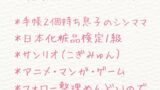 *手帳2個持ち息子のシンママ
*日本化粧品検定1級
*サンリオ(こぎみゅん)
*アニメ・マンガ・ゲーム
*フォロー整理めんどいので